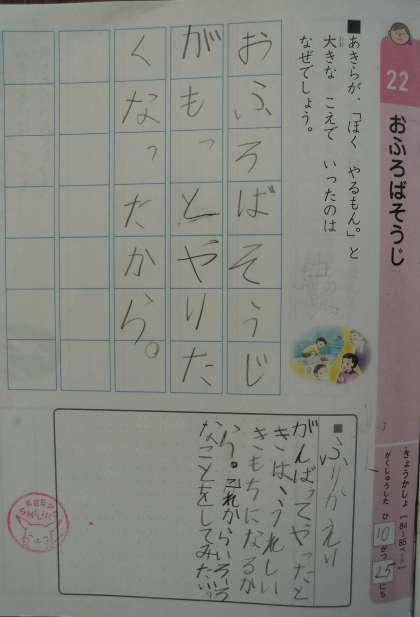 22
おふろばそうじ
きょうかしょ［84〜85ページ］
がくしゅうした ひ
10 がつ 25 にち
■あきらが、「ぼく やるもん。」と
大きな こえで いったのは
なぜでしょう。
おお
おふろばそうじ
がもっとやりた
くなったから。
■ふりかえり
がんばってやったと
きは、うれしい
きもちになるか
ら。これからいろいろ
なことをしてみたい。
KEEP
SMILING